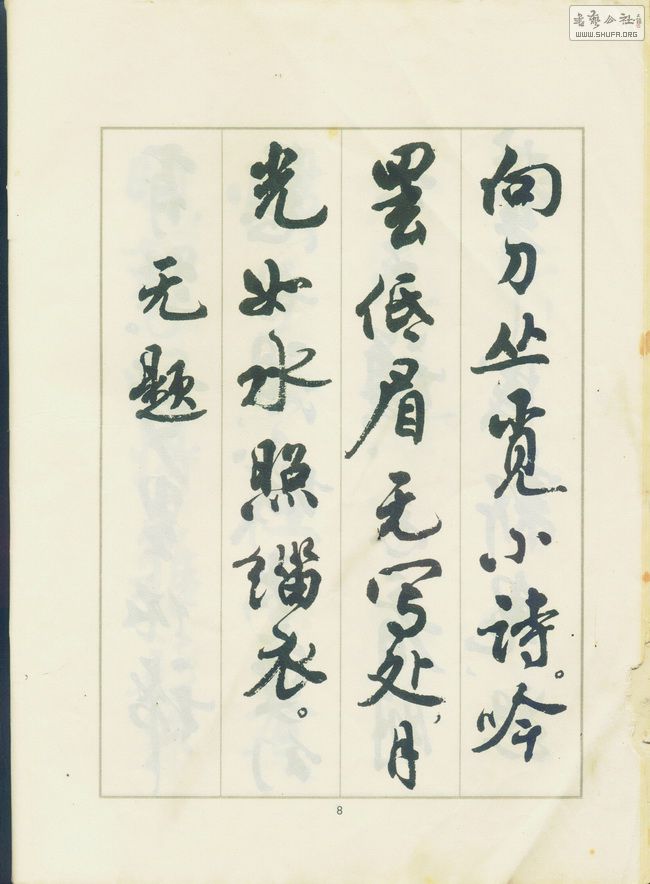 向刀丛觅小诗。吟
罢低眉无写处，月
光如水照缁衣。
无题
8
书艺公社
WWW.SHUFA.ORG